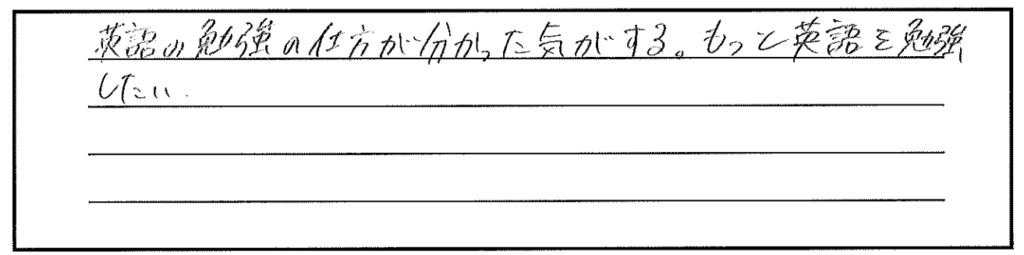 英語の勉強の仕方が分かった気がする。もっと英語を勉強
したい.